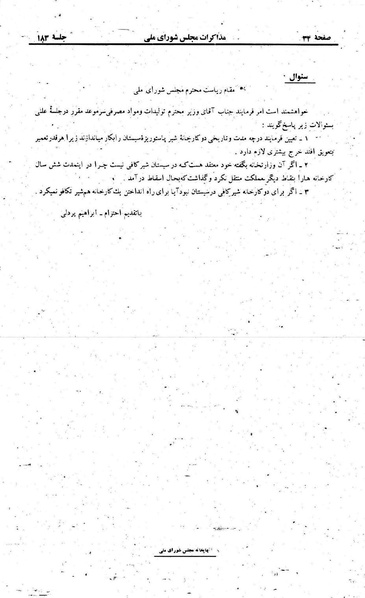 صفحهٔ ۳۴ مذاکرات مجلس شورای ملی جلسهٔ ۱۸۳
سئوال
مقام ریاست محترم مجلس شورای ملی
خواهشمند است امر فرمایند جناب آقای وزیر محترم تولیدات و مواد مصرفی سر موعد مقرر در جلسهٔ علنی
بسئوالات زیر پاسخ گویند :
۱ ـ تعیین فرمایند درچه مدت و تاریخی دو کارخانهٔ شیر پاستوریزهٔ سیستان را بکار میاندازند زیرا هرقدر تعمیر
بتعویق افتد خرج بیشتری لازم دارد .
۲ ـ اگر آن وزارتخانه بگفته خود معتقد هست که در سیستان شیر کافی نیست چرا در اینمدت شش سال
کارخانه ها را بنقاط دیگر مملکت منتقل نکرد و گذاشت که بحال اسقاط درآمد .
۳ ـ اگر برای دو کارخانه شیر کافی در سیستان نبود آیا برای راه انداختن یک کارخانه هم شیر تکافو نمیکرد .
باتقدیم احترام ـ ابراهیم پردلی
چاپخانه مجلس شورای ملی